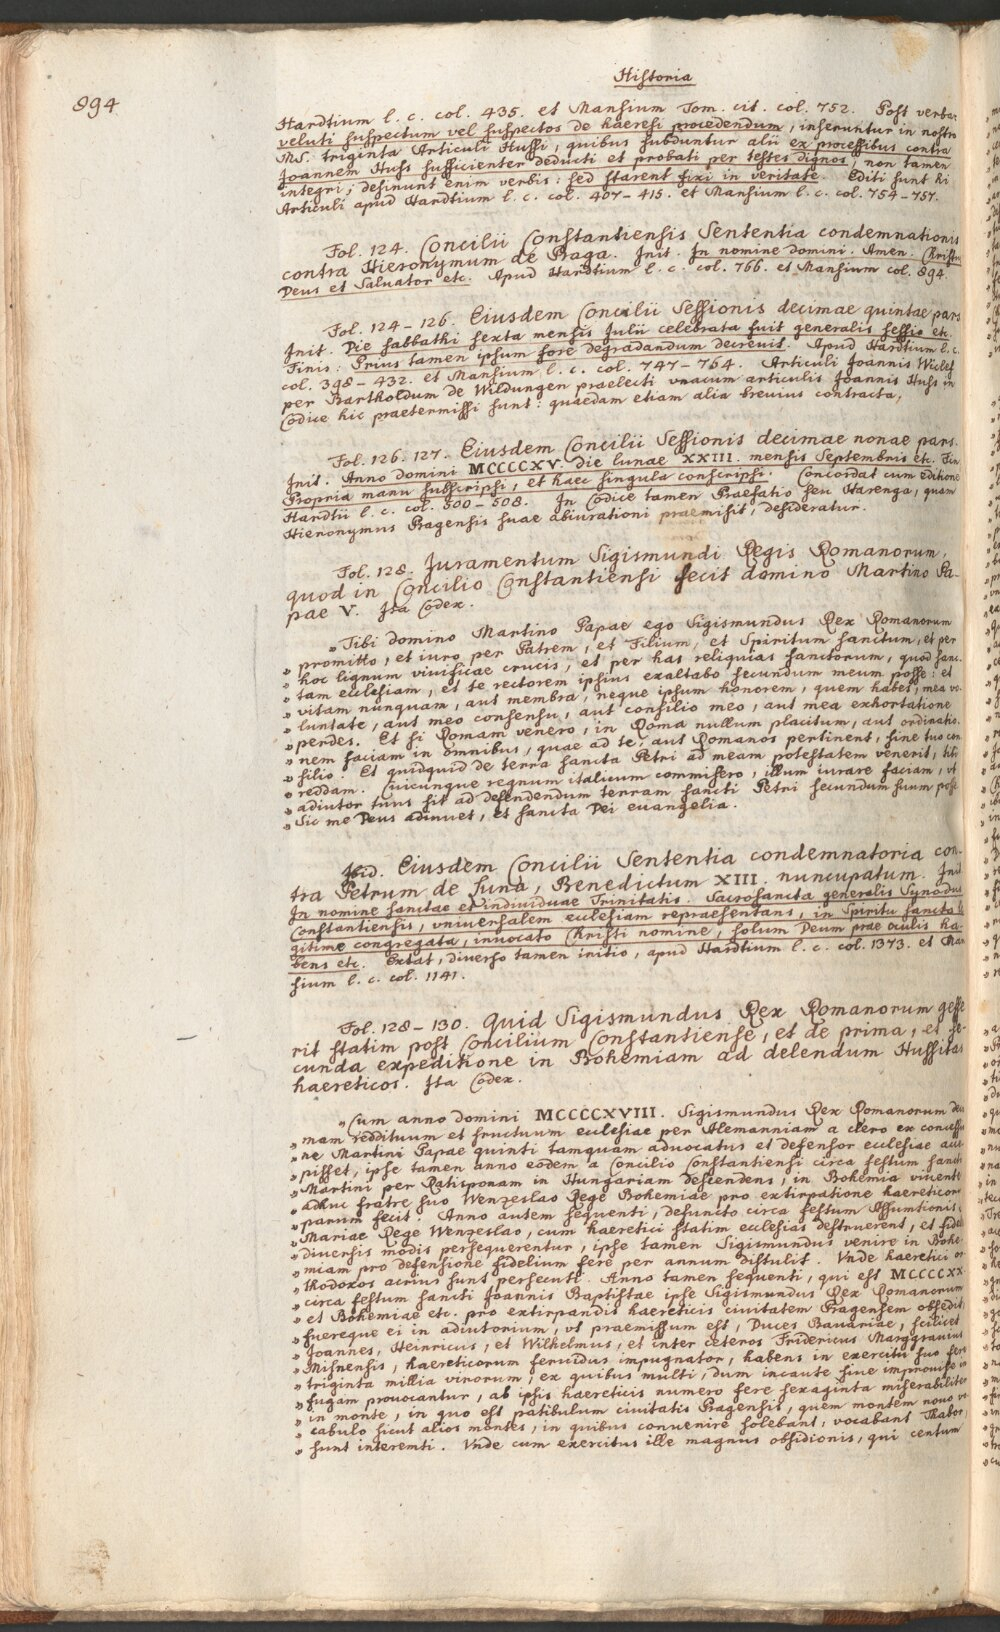 Historia
894
Hardtium l. c. col. 435. et Mansium Tom. cit. col. 752. Post verba:
veluti suspectum vel suspectos de haeresi procedendum, inseruntur in nostro
MS. triginta Articuli Hussi, quibus subduntur alii ex processibus contra
Joannem Huss sufficienter deducti et probati per testes dignos, non tamen
integri; desinunt enim verbis: sed starent fixi in veritate. Editi sunt hi
Articuli apud Hardtium l. c. col. 407-415. et Mansium l. c. col. 754-757.
Fol. 124. Concilii Constantiensis Sententia condemnationis
contra Hieronymum de Praga. Init. In nomine domini. Amen. Christus
Deus et Salvator etc. Apud Hardtium l. c. col. 766. et Mansium col. 894.
Fol. 124-126. Eiusdem Concilii Sessionis decimae quintae pars
Init. Die sabbathi sexta mensis Julii celebrata fuit generalis sessio etc.
Finis: Prius tamen ipsum fore degradandum decrevit. Apud Hardtium l. c.
col. 398-432. et Mansium l. c. col. 747-764. Articuli Joannis Wiclef
per Bartholdum de Wildungen praelecti vnacum articulis Joannis Huss in
Codice hic praetermissi sunt: quaedam etiam alia brevius contracta,
Fol. 126. 127. Eiusdem Concilii Sessionis decimae nonae pars.
Init. Anno domini MCCCCXV. die lunae XXIII. mensis Septembris etc. Fin.
Propria manu subscripsi, et haec singula conscripsi. Concordat cum editione
Hardtii l. c. col. 500-508. In Codice tamen Praefatio seu Harenga, quam
Hieronymus Pragensis suae abiurationi praemisit, desideratur.
Fol. 128. Juramentum Sigismundi Regis Romanorum,
quod in Concilio Constantiensi fecit domino Martino Pa-
pae V. Ita Codex.
"Tibi domino Martino Papae ego Sigismundus Rex Romanorum
" promitto, et iuro per Patrem, et Filium, et Spiritum sanctum, et per
" hoc lignum vivificae crucis, et per has reliquias sanctorum, quod sanc-
" tam ecclesiam, et te rectorem ipsius exaltabo secundum meum posse: et
" vitam nunquam, aut membra, neque ipsum honorem, quem habes, mea vo-
" luntate, aut meo consensu, aut consilio meo, aut mea exhortatione
" perdes. Et si Romam venero, in Roma nullum placitum, aut ordinatio-
" nem faciam in omnibus, quae ad te, aut Romanos pertinent, sine tuo con-
" silio. Et quidquid de terra sancta Petri ad meam potestatem venerit, tibi
" reddam. Cuicunque regnum italicum commisero, illum iurare faciam, vt
" adiutor tuus sit ad defendendum terram sancti Petri secundum suum posse.
" Sic me Deus adiuvet, et sancta Dei evangelia.
Ibid. Eiusdem Concilii Sententia condemnatoria con-
tra Petrum de Luna, Benedictum XIII. nuncupatum. Init.
In nomine sanctae et individuae Trinitatis. Sacrosancta generalis Synodus
Constantiensis, vniversalem ecclesiam repraesentans, in Spiritu sancto le-
gitime congregata, invocato Christi nomine, solum Deum prae oculis ha-
bens etc. Extat, diverso tamen initio, apud Hardtium l. c. col. 1373. et Man-
sium l. c. col. 1141.
Fol. 128-130. Quid Sigismundus Rex Romanorum gesse-
rit statim post Concilium Constantiense, et de prima, et se-
cunda expeditione in Bohemiam ad delendum Hussitas
haereticos. Ita Codex.
"Cum anno domini MCCCCXVIII. Sigismundus Rex Romanorum deci-
" mam reddituum et fructuum ecclesiae per Alemanniam a clero ex concessio-
" ne Martini Papae quinti tamquam advocatus et defensor ecclesiae acce-
" pisset, ipse tamen anno eodem a Concilio Constantiensi circa festum sancti
" Martini per Ratisponam in Hungariam descendens, in Bohemia vivente
" adhuc fratre suo Wenzeslao Rege Bohemiae pro extirpatione haereticorum
" parum fecit. Anno autem sequenti, defuncto circa festum Assumtionis
" Mariae Rege Wenzeslao, cum haeretici statim ecclesias destruerent, et fideles
" diversis modis persequerentur, ipse tamen Sigismundus venire in Bohe-
" miam pro defensione fidelium fere per annum distulit. Vnde haeretici or-
" thodoxos acrius sunt persecuti. Anno tamen sequenti, qui est MCCCCXX
" circa festum sancti Joannis Baptistae ipse Sigismundus Rex Romanorum
" et Bohemiae etc. pro extirpandis haereticis civitatem Pragensem obsedit,
" fuereque ei in adiutorium, vt praemissum est, Duces Bavariae, scilicet
" Joannes, Heinricus, et Wilhelmus, et inter ceteros Fridericus Marggravius
" Misnensis, haereticorum fervidus impugnator, habens in exercitu suo fere
" triginta millia virorum, ex quibus multi, dum incaute sine improvise in
" fugam provocantur, ab ipsis haereticis numero fere sexaginta miserabiliter
" in monte, in quo est patibulum civitatis Pragensis, quem montem novo vo-
" cabulo sicut alios montes, in quibus convenire solebant, vocabant Thabor,
" sunt interemti. Vnde cum exercitus ille magnus obsidionis, qui centum